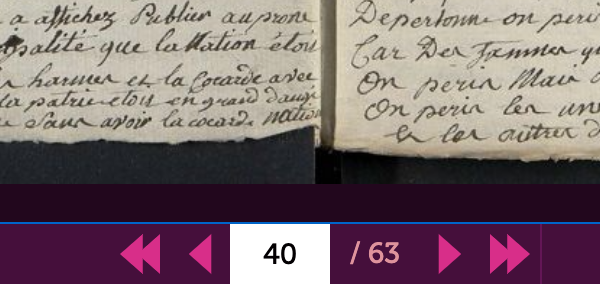 a affichez Publier au prone
palité que la Nation étois
harmes et la Cocarde avec
la patrie etois en grand dang
Sans avoir la cocarde nation
Depersonne on peri
Car Des femmes qu
On perin Mais
On perin les une
et les autres d
40 / 63